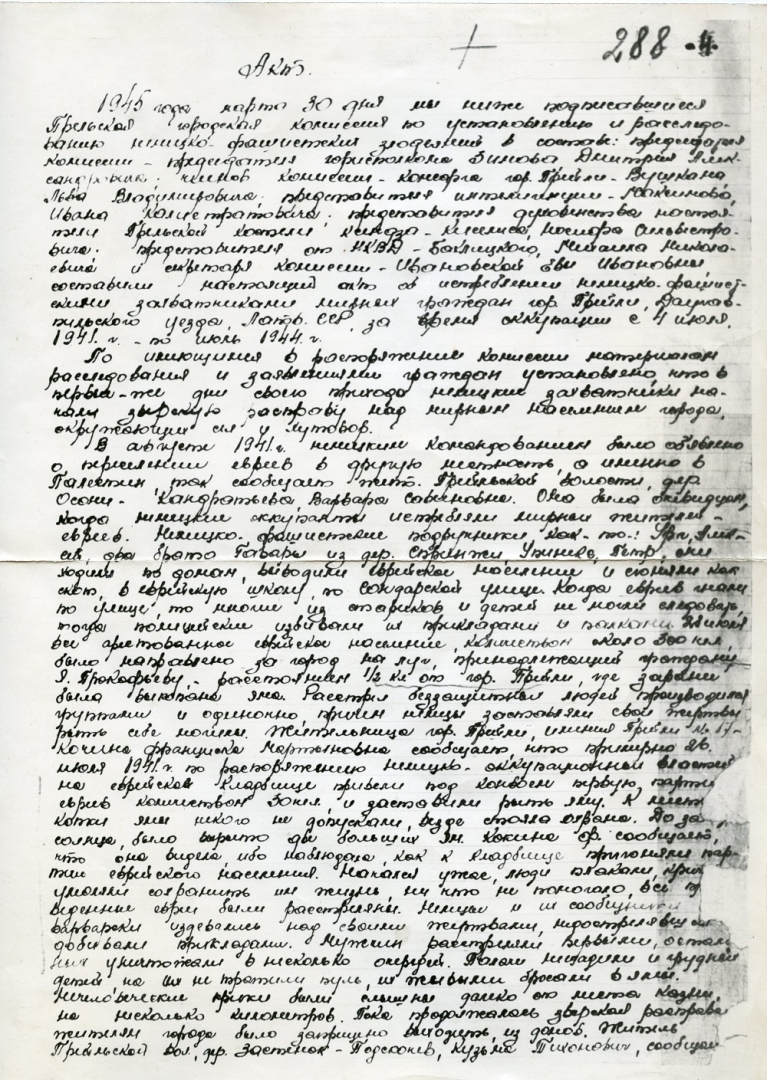 288
Акт.
1945 года марта 30 дня мы ниже подписавшиеся
Прельская городская комиссия по установлению и расследо-
ванию немецко-фашистских злодеяний в составе: председателя
комиссии - председателя горисполкома Зимова Дмитрия Алек-
сандровича: членов комиссии - парторга гор. Прейли - Вушкана
Льва Владимировича, представителя интеллигенции - Максимова,
Ивана Калистратовича: представителя духовенства настоя-
теля Прельской костёла ксендза - Иосифа Сильвестро-
вича: представителя от НКВД - Боклицкого, Михаила Никола-
евича и секретаря комиссии - Ивановской Евы Ивановны
составили настоящий акт об истреблении немецко-фашист-
скими захватчиками мирных граждан гор. Прейли, Даугав-
пильского уезда, Латв. ССР, за время оккупации с 4 июля
1941 г. - по июль 1944 г.
По имеющимся в распоряжении комиссии материалам
расследования и заявлениями граждан установлено, что в
первые-же дни своего прихода немецкие захватчики на-
чали зверскую расправу над мирным населением города,
окружающих сел и хуторов.
В августе 1941 г. немецким командованием было объявлено
о переселении евреев в другую местность, а именно в
Палестин, так сообщает жит. Прейльской волости, дер.
Осени - Кандратьева, Варвара Савиновна. Она была очевидцем,
когда немецкие оккупанты истребляли мирных жителей -
евреев. Немецко-фашистские подручники, как-то:
два брата Гавары из дер. Петр, они
ходили по домам, выводили еврейское население и сгоняли как
скот, в еврейскую школу, по Сондарской улице. Когда евреев гнали
по улице, то многие из стариков и детей не могли следовать,
тогда полицейские избивали их прикладами и палками. июля
всё арестованное еврейское население, количеством около 300 чел.
было направлено за город на луг, принадлежащий гражданину
Я. Прокофьеву, - расстоянием 1/2 км от гор. Прейли, где заранее
была выкопана яма. Расстрел беззащитных людей производился
группами и одиночно, причем немцы заставляли свои жертвы
рыть себе могилы. Жительница гор. Прейли, имения Прейли № 17 -
Кокина Франциска Мартыновна сообщает, что примерно 26
июля 1941 г. по распоряжению немецко-оккупационных властей
на еврейское кладбище привели под конвоем первую партию
евреев количеством 30 чел, и заставили рыть яму. К месту
копки ямы никого не допускали, везде стояла охрана. До за-
солнца, было вырыто две больших ям. Кокина Ф. сообщает,
что она видела, ибо наблюдала, как к кладбище пригоняли пар-
тии еврейского населения. Начался ужас, люди плакали,
умоляли сохранить им жизнь, ни что не помогало, все
веденные евреи были расстреляны. Немцы и их сообщники
варварски издевались над своими жертвами,
добивали прикладами. Мужчин расстреляли первыми, осталь-
ных уничтожали в несколько очередей. Палачи не щадили и грудных
детей на них не тратили пуль, их живыми бросали в ямы.
Нечеловеческие крики были слышны далеко от места казни,
на несколько километров. Пока продолжалась зверская расправа
жителям города было запрещено выходить из домов. Житель
Прейльской вол., др. Застенок - Кузьма Тихонович, сообщает